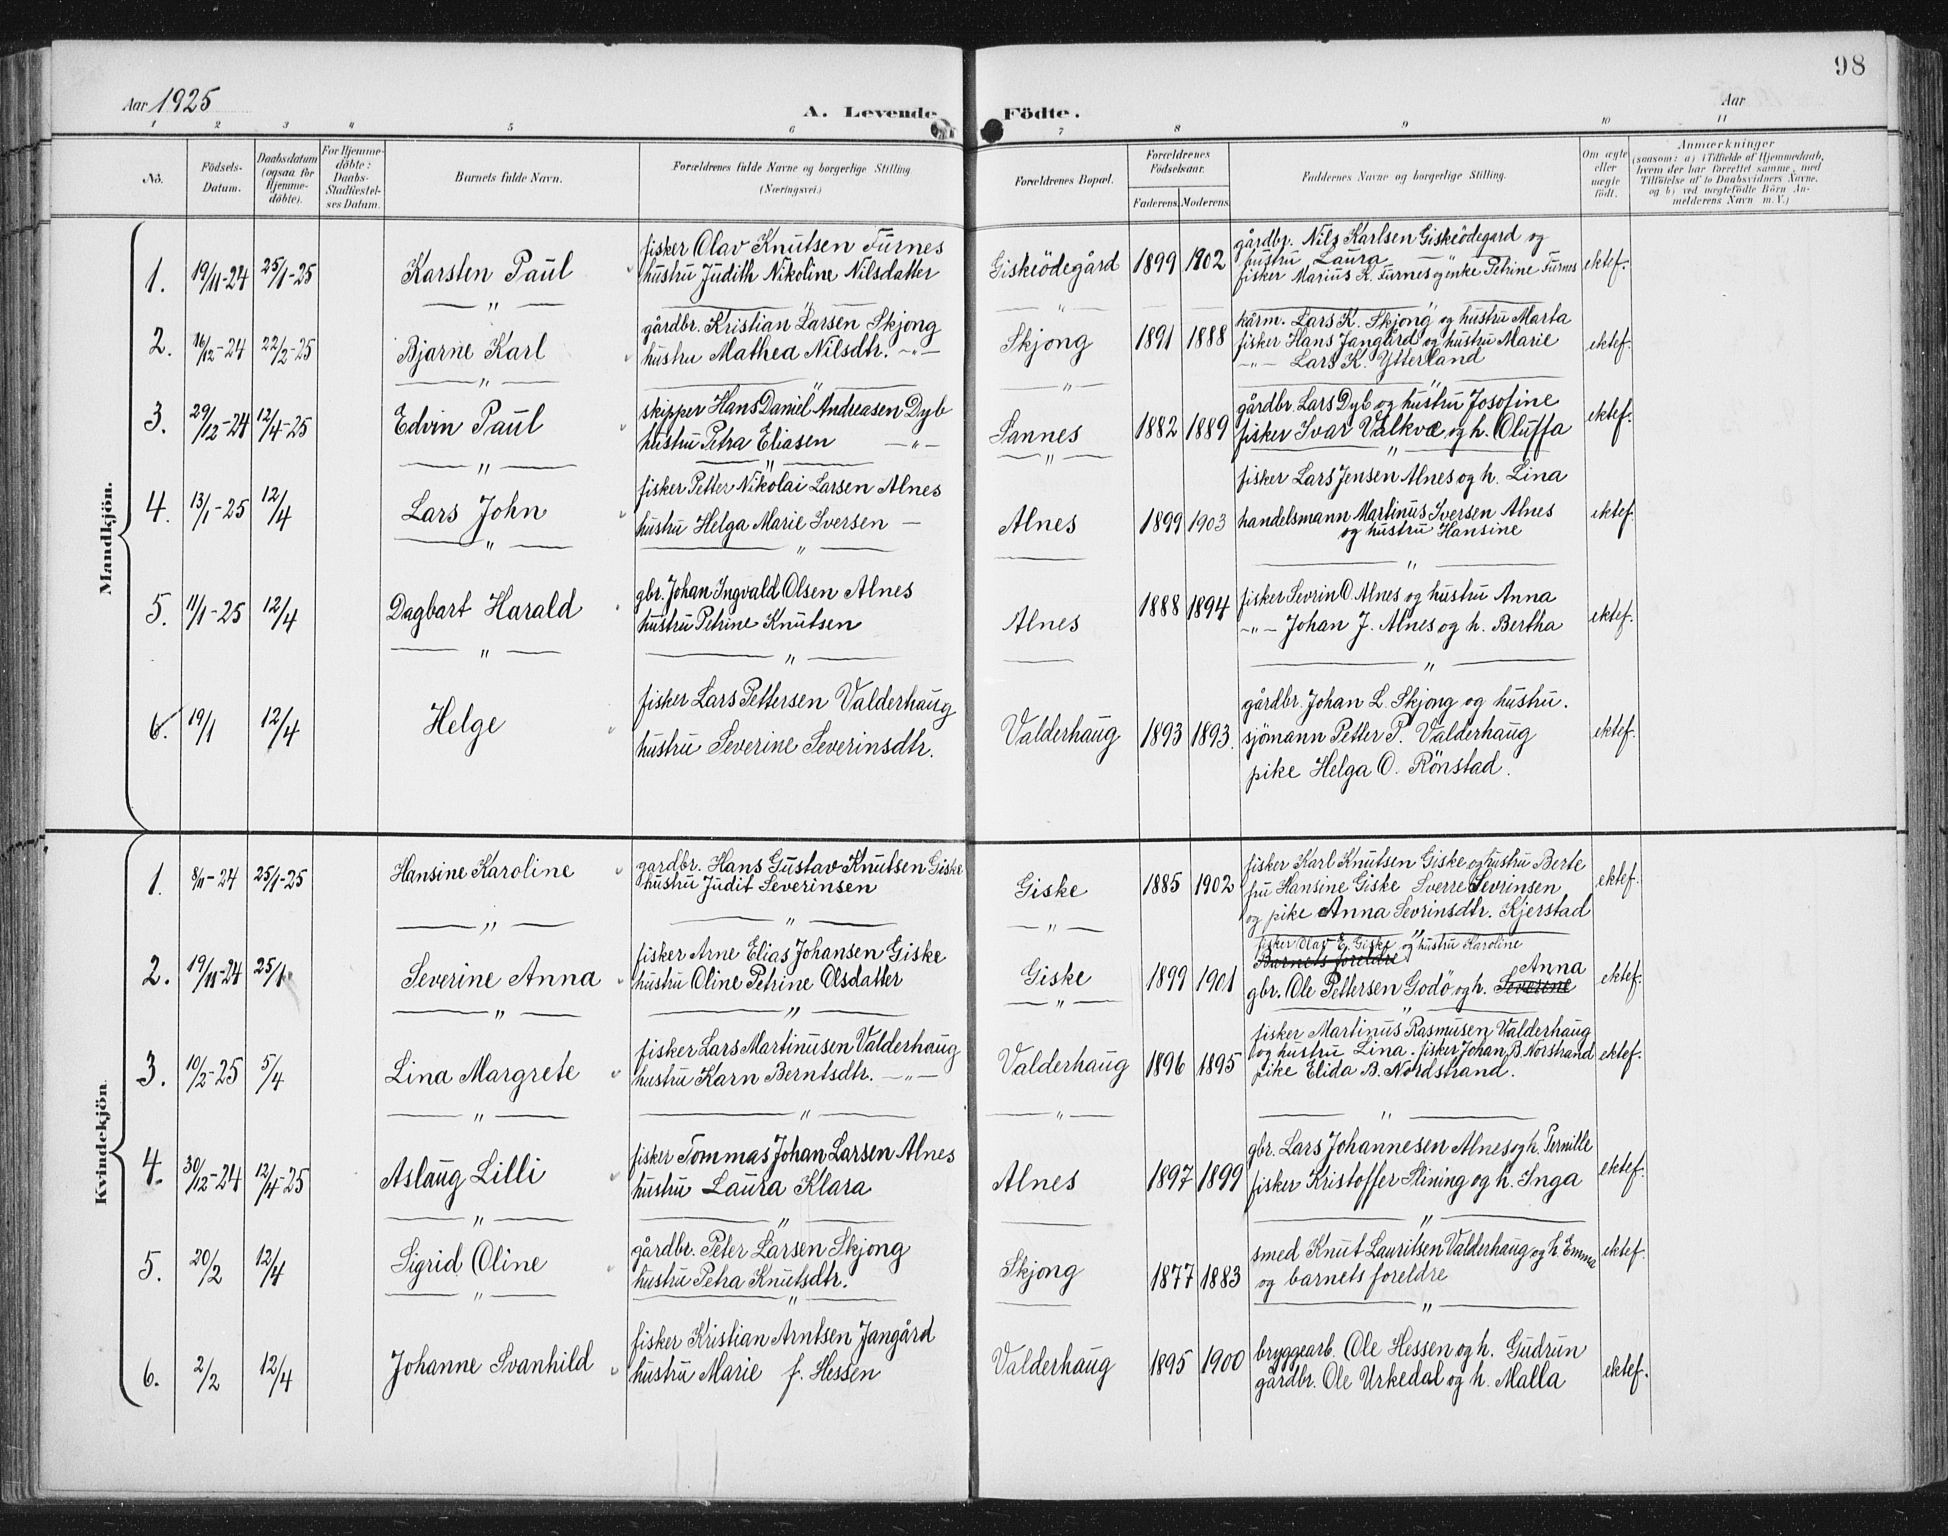 98
Aar 1925
A. Levende
Födte.
Aar
1 2 3 4 5 6 7 8 9 10 11
No.
Födsels-
Datum.
Daabsdatum
(ogsaa for
Hjemme-
döbte).
For Hjemme-
döbte:
Daabs-
Stadfæstel-
ses Datum.
Barnets fulde Navn.
Forældrenes fulde Navne og borgerlige Stilling
(Næringsvei.)
Forældrenes Bopæl.
Forældrenes
Födselsaar.
Faderens. Moderens.
Faddernes Navne og borgerlige Stilling.
Om ægte
eller
uægte
födt.
Anmærkninger
(saasom: a) i Tilfælde af Hjemmedaab,
hvem der har forrettet samme, med
Tilföielse af to Daabsvidners Navne,
og b) ved uægtefödte Börn An-
melderens Navn m. V.)
Mandkjön.
1. 19/11-24 25/1-25 Karsten Paul
fisker Olav Knutsen Furnes
hustru Judith Nikoline Nilsdatter
Giskeödegård 1899 1902
gårdbr. Nils Karlsen Giskeödegard og
hustru Laura —
fisker Marius K. Furnes og enke Petrine Furnes
ektef.
2. 16/12-24 22/2-25 Bjarne Karl
gårdbr. Kristian Larsen Skjong
hustru Mathea Nilsdtr. —„—
Skjong 1891 1888
kårm. Lars K. Skjong og hustru Marta
fisker Hans Jangård og hustru Marie
—„— Lars K. Ytterland
ektef.
3. 29/12-24 12/4-25 Edvin Paul
skipper Hans Daniel Andreasen Dyb
hustru Petra Eliasen —„—
Sannes 1882 1889
gårdbr. Lars Dyb og hustru Josofine
fisker Ivar Valkvæ og h. Oluffa
ektef.
4. 13/1-25 12/4 Lars John
fisker Petter Nikolai Larsen Alnes
hustru Helga Marie Iversen —
Alnes 1899 1903
fisker Lars Jensen Alnes og h. Lina
handelsmann Martinus Iversen Alnes
og hustru Hansine
ektef.
5. 11/1-25 12/4 Dagbart Harald
gbr. Johan Ingvald Olsen Alnes
hustru Petrine Knutsen
Alnes 1888 1894
fisker Sevrin O. Alnes og hustru Anna
—„— Johan J. Alnes og h. Bertha
ektef.
6. 19/1 12/4 Helge
fisker Lars Pettersen Valderhaug
hustru Severine Severinsdtr.
Valderhaug 1893 1893.
gårdbr. Johan L. Skjong og hustru.
sjömann Petter P. Valderhaug
pike Helga O. Rönstad.
ektef.
Kvindekjön
1. 8/11-24 25/1-25 Hansine Karoline
gardbr. Hans Gustav Knutsen Giske
hustru Judit Severinsen
Giske 1885 1902
fisker Karl Knutsen Giske og hustru Berte
fru Hansine Giske Sverre Sevrinsen
og pike Anna Sevrinsdtr. Kjerstad
ektef.
2. 19/11-24 25/1 Severine Anna
fisker Arne Elias Johansen Giske
hustru Oline Petrine Olsdatter
Giske 1899 1901
fisker Olav E. Giske og hustru Karoline
Barnets foreldre
Anna
gbr. Ole Pettersen Godö og h. Severine
ektef.
3. 10/2-25 5/4 Lina Margrete
fisker Lars Martinusen Valderhaug
hustru Karn Berntsdtr. —„—
Valderhaug 1896 1895
fisker Martinus Rasmusen Valderhaug
og hustru Lina. fisker Johan B. Norstrand
pike Elida B. Nordstrand.
ektef.
4. 30/12-24 12/4-25 Aslaug Lilli
fisker Tommas Johan Larsen Alnes
hustru Laura Klara
Alnes 1897 1899
gbr. Lars Johannesen Alnes og h. Pernille
fisker Kristoffer Slining og h. Inga
ektef.
5. 20/2 12/4 Sigrid Oline
gårdbr. Peter Larsen Skjong
hustru Petra Knutsdtr.
Skjong 1877 1883
smed Knut Lauritsen Valderhaug og h. Emma
og barnets foreldre
ektef.
6. 2/2 12/4 Johanne Svanhild
fisker Kristian Arntsen Jangård
hustru Marie f. Hessen
Valderhaug 1895 1900
bryggearb. Ole Hessen og h. Gudrun
gårdbr. Ole Urkedal og h. Malla
ektef.